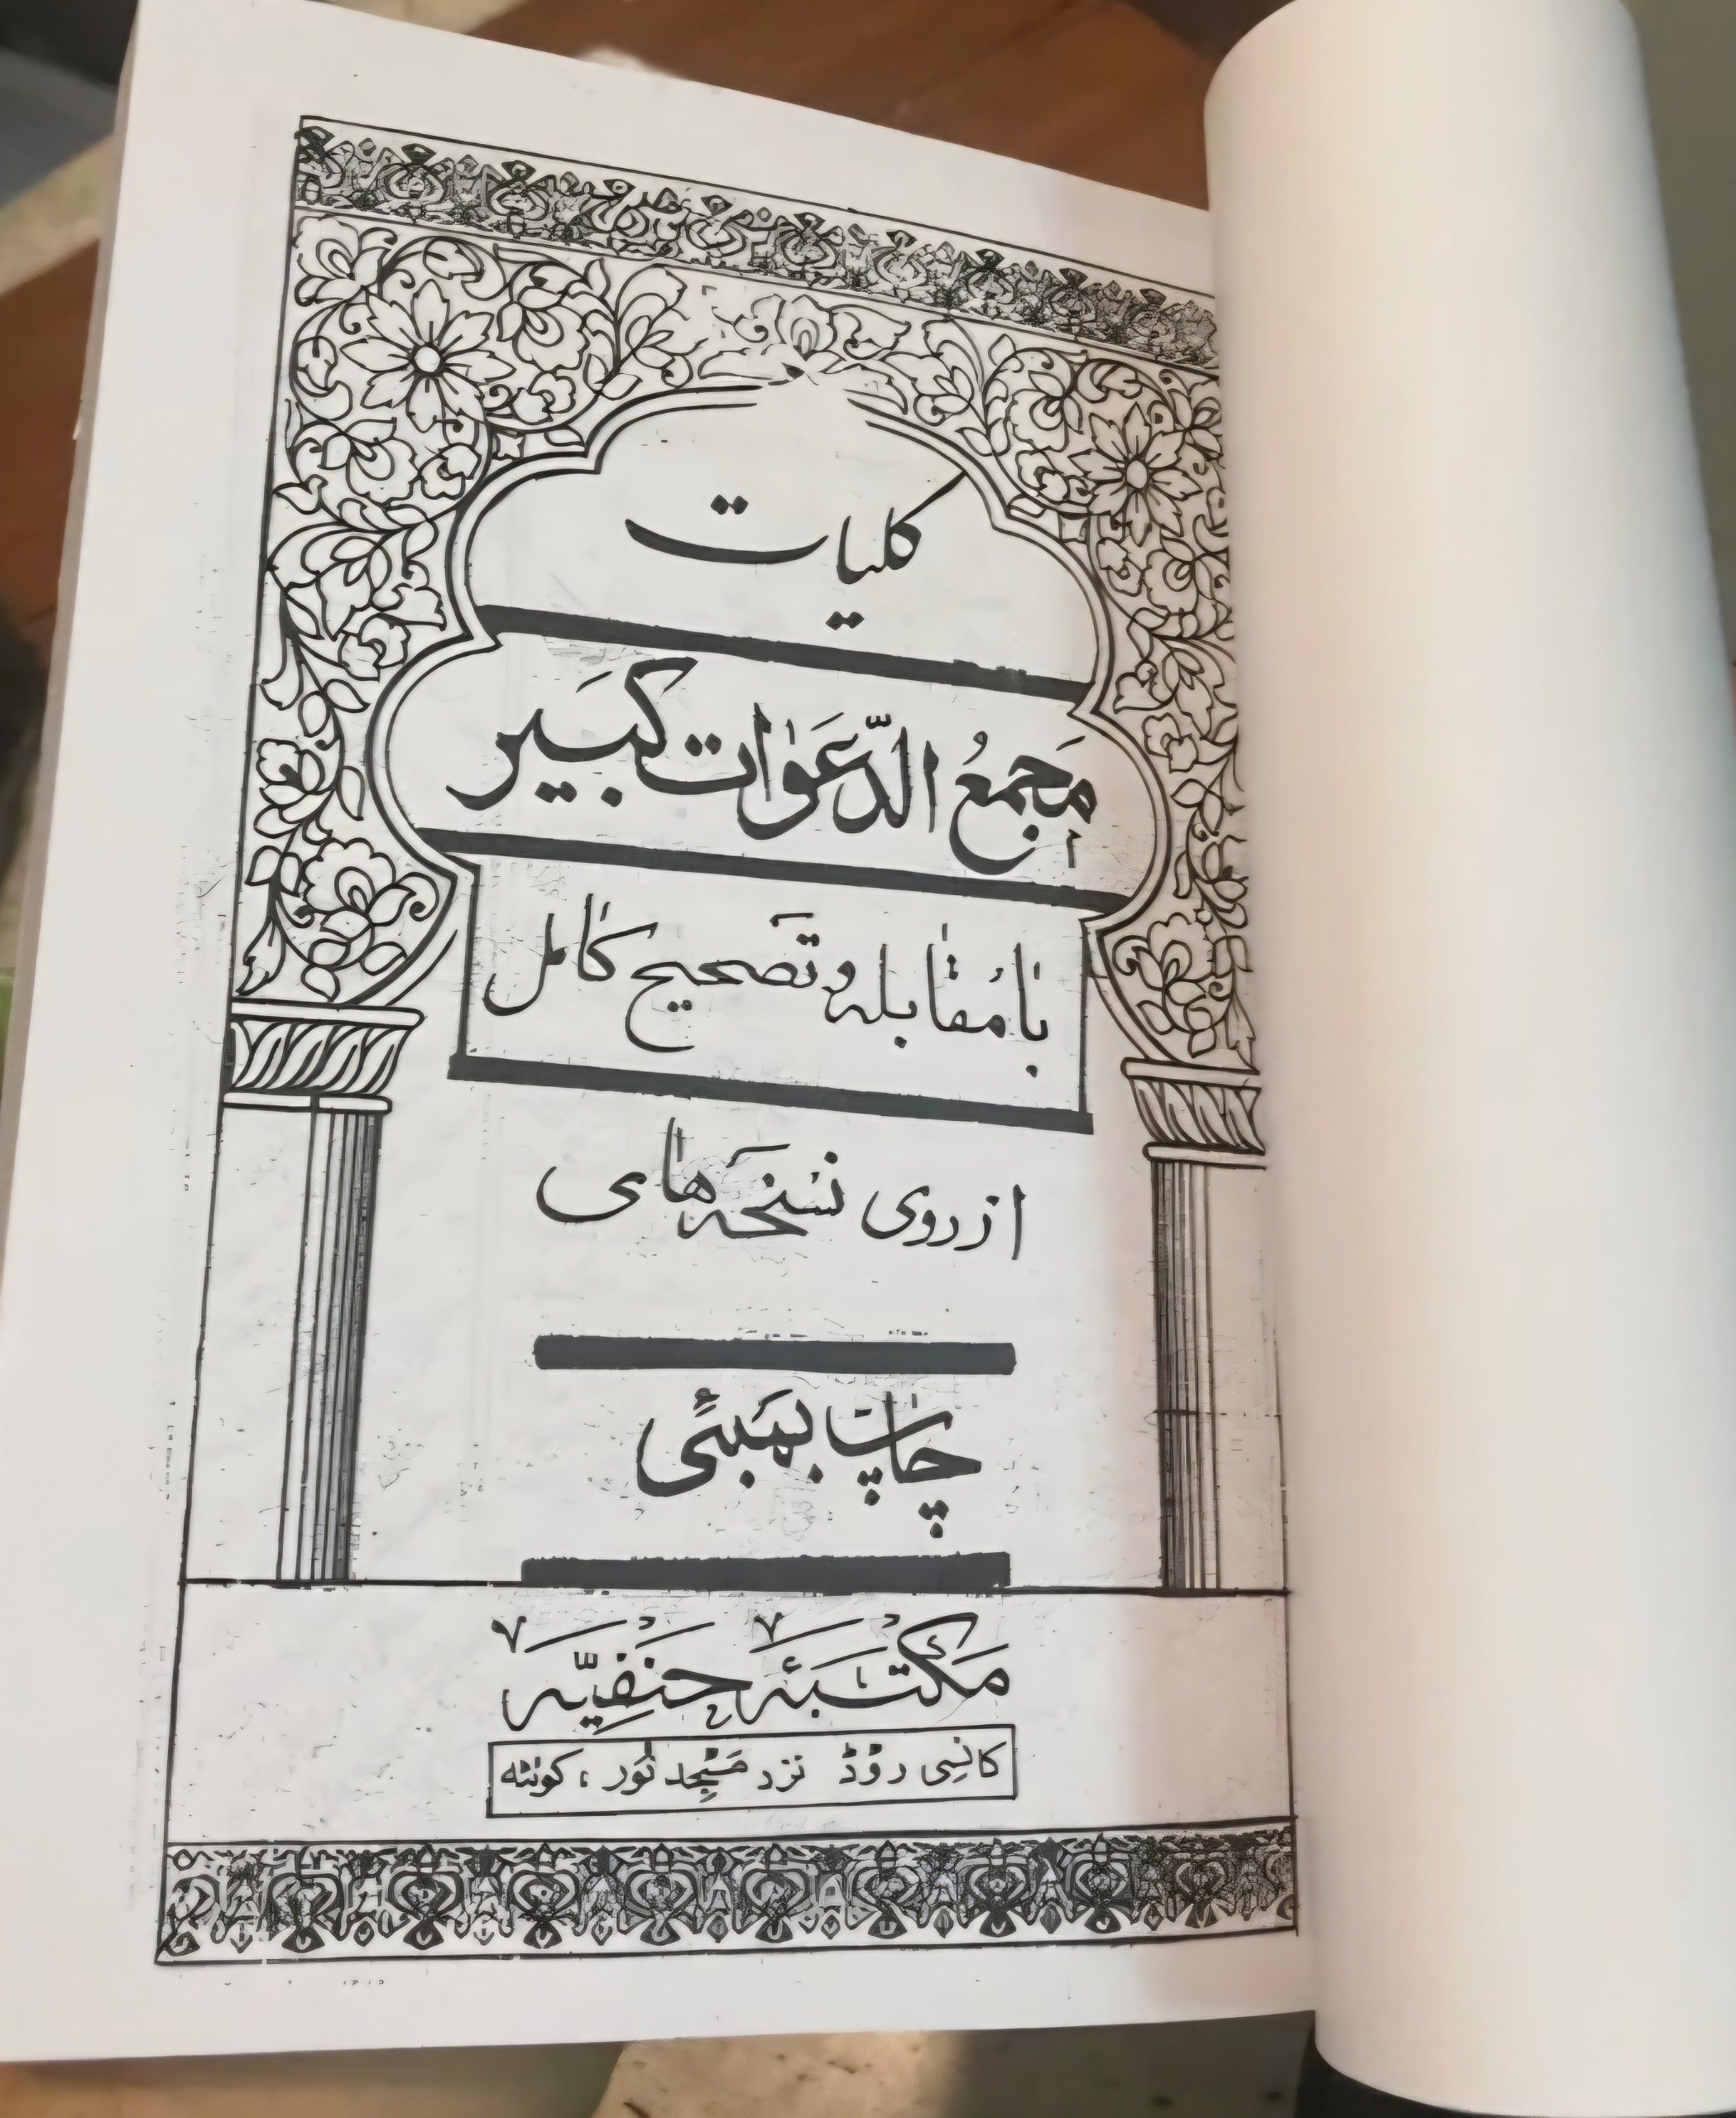 کلیات
مَجمعُ الدَّعَوات کَبَیر
بامُقابله و تصحیح کامل
از روی نسخَه‌های
چاپ بمبَئی
مَکتَبَۂ حَنَفِیَّہ
کانسِی روڈ نزد مَسجِد نُور، کوئٹہ